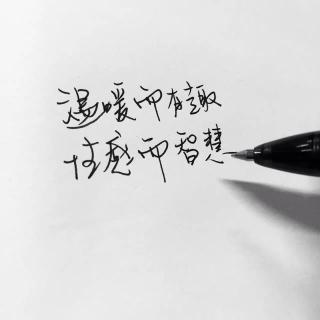 温暖而有趣
性感而智慧